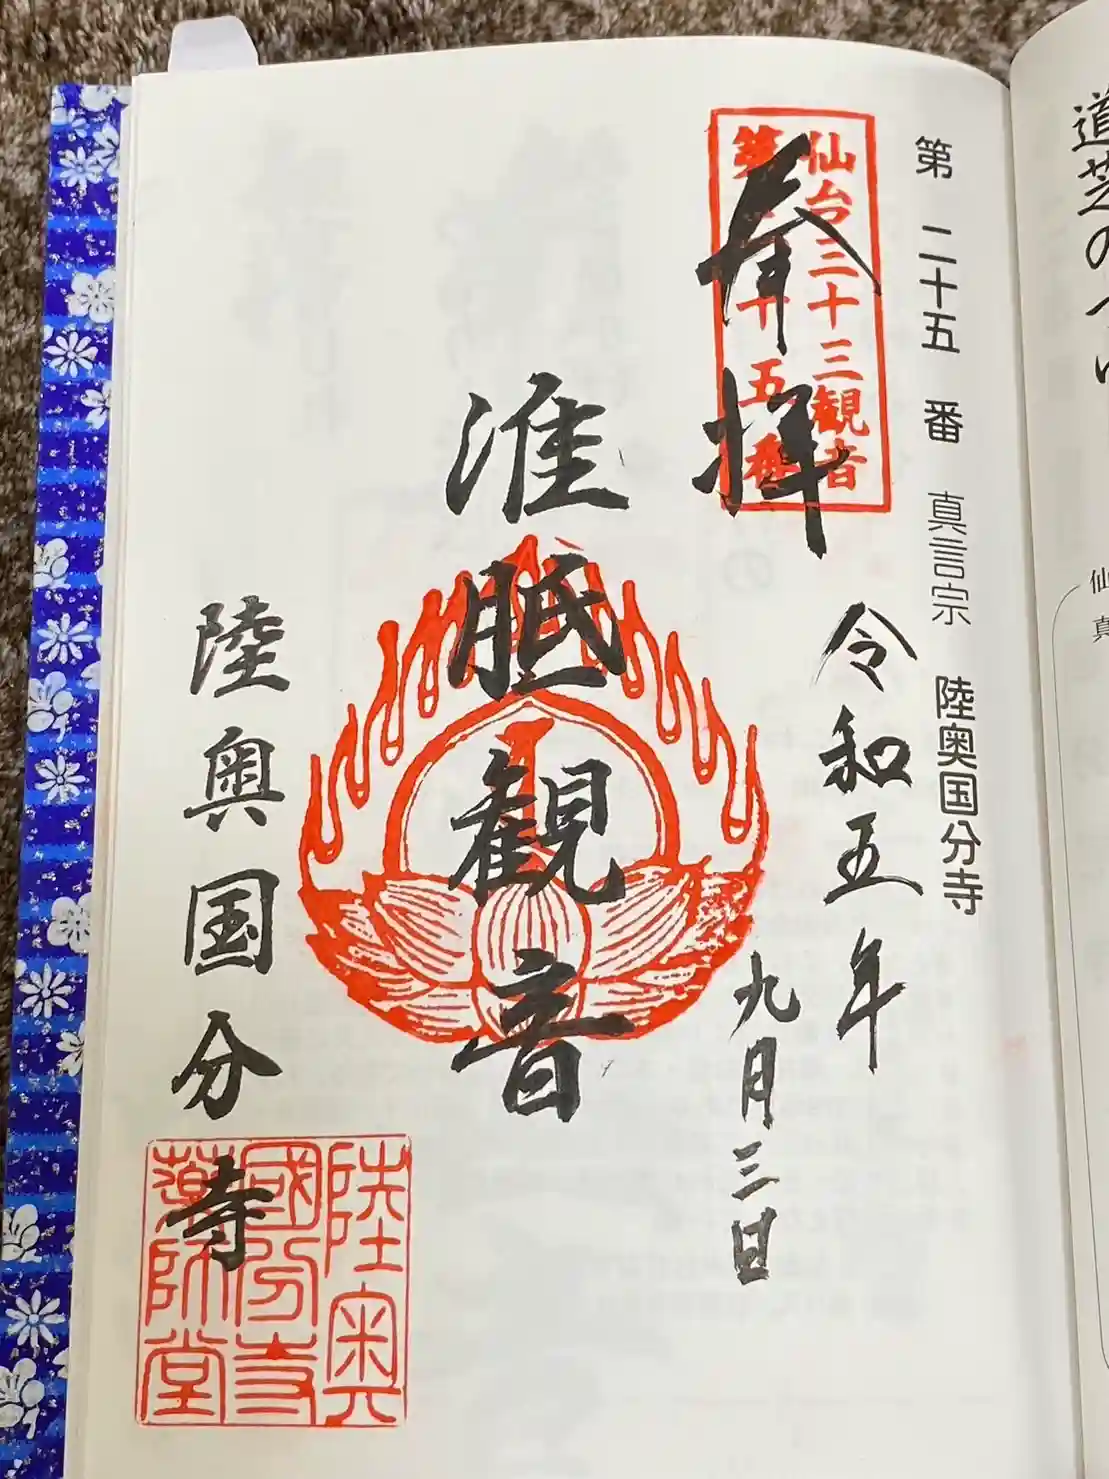 道芝の
仙
真
第 二十五 番 真言宗 陸奥国分寺
仙台三十三観音
第二十五番
奉拝
令和五年
九月三日
准胝観音
陸奥国分寺
陸奥
國分寺
薬師堂